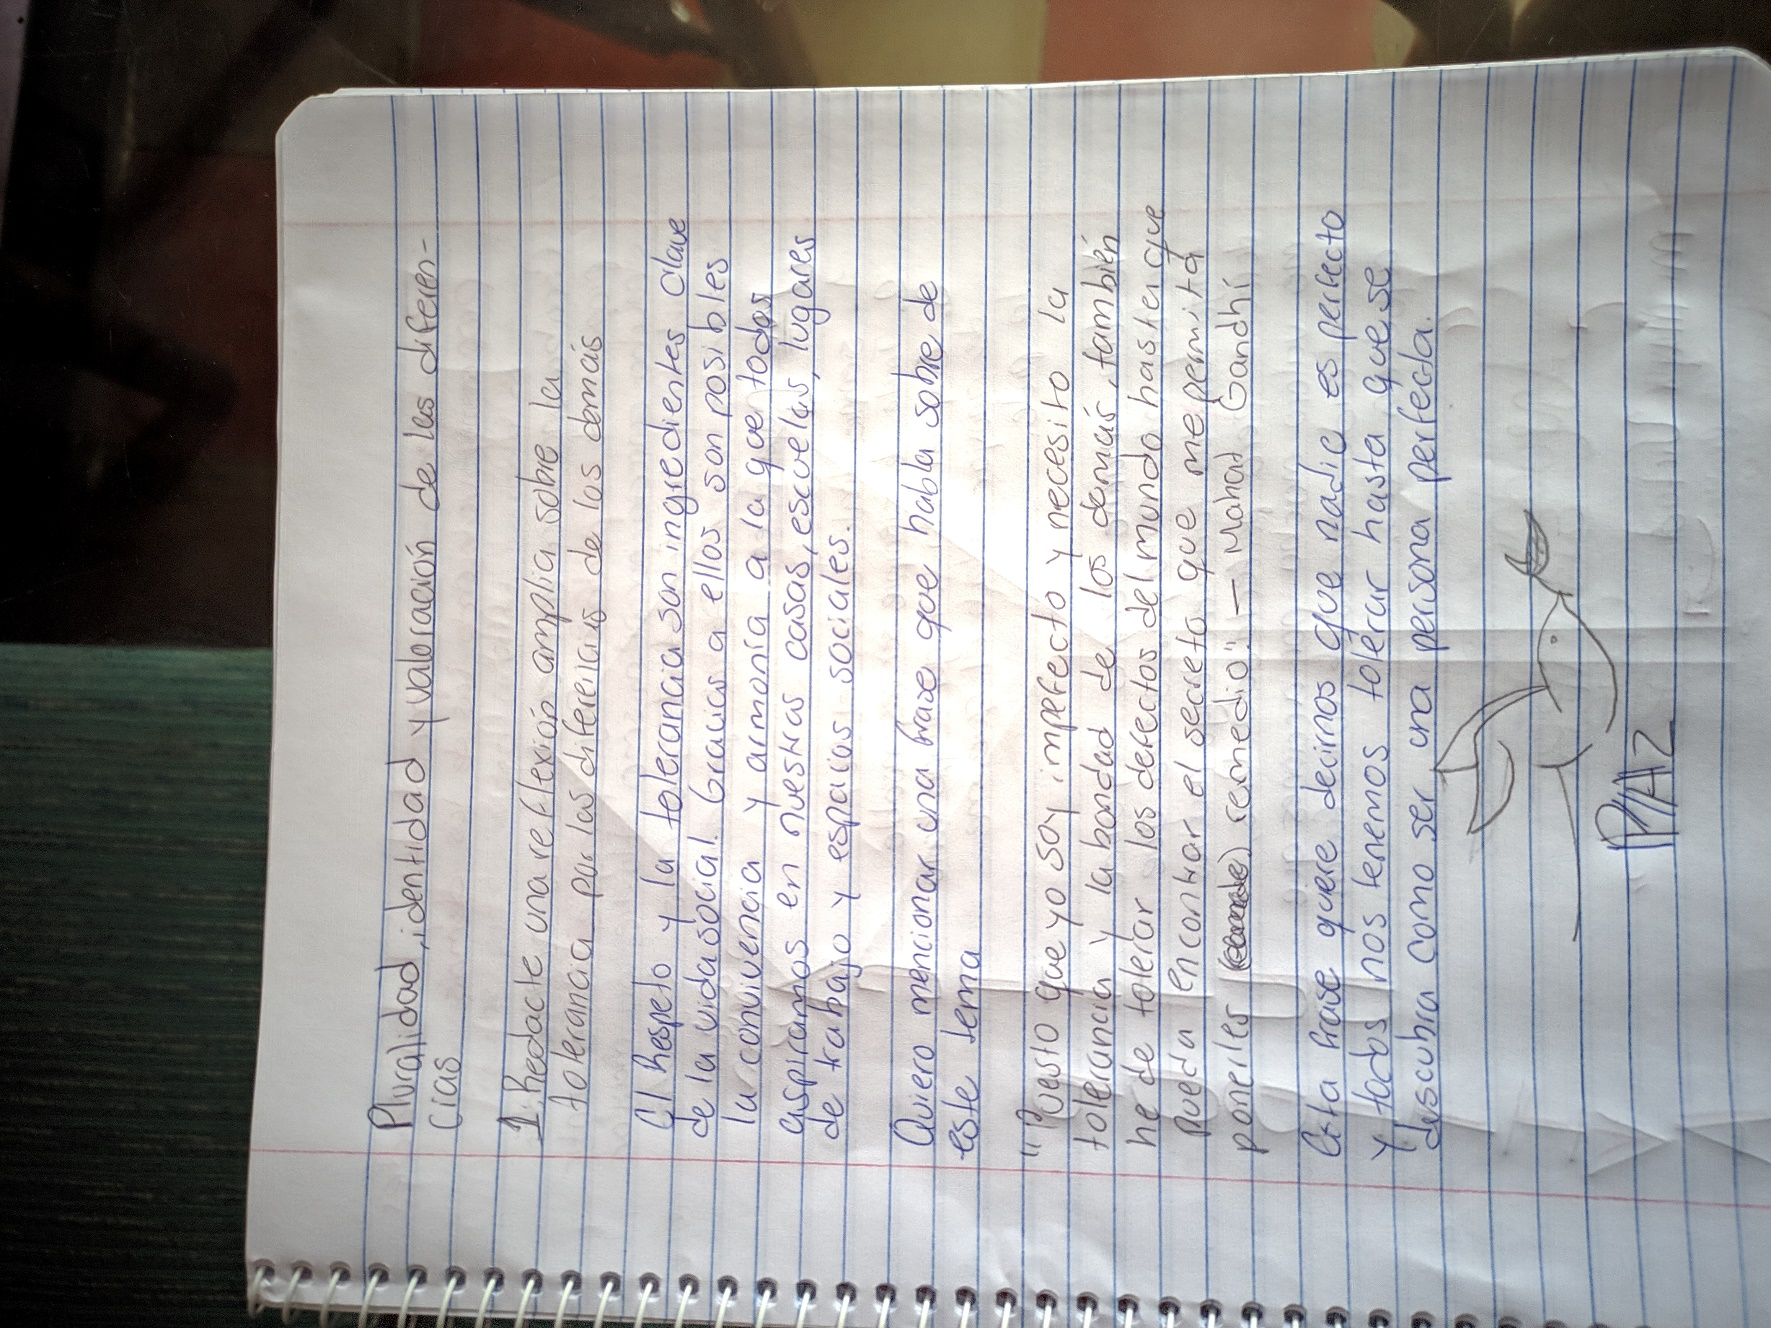 Pluralidad, identidad y valoración de las diferen-
cias
1. Redacte una reflexión amplia sobre la
tolerancia por las diferencias de los demás
El Respeto y la tolerancia son ingredientes clave
de la vida social. Gracias a ellos son posibles
la convivencia y armonía a la que todos
aspiramos en nuestras casas, escuelas, lugares
de trabajo y espacios sociales.
Quiero mencionar una frase que habla sobre de
este tema
"Puesto que yo soy imperfecto y necesito la
tolerancia y la bondad de los demás, también
he de tolerar los defectos del mundo hasta que
pueda encontrar el secreto que me permita
ponerles remedio". — Mahad Gandhi
Esta frase quere decirnos que nadie es perfecto
y todos nos tenemos tolerar hasta que se
descubra como ser una persona perfecta.
PAZ